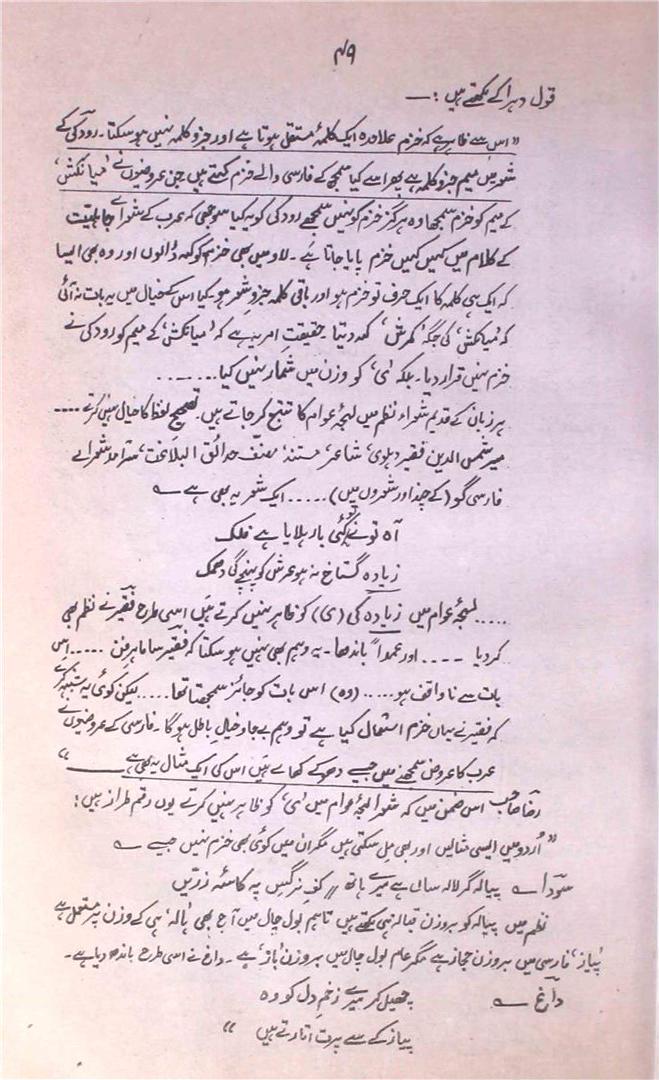 ۴۹
قول دہرا کے لکھتے ہیں :—
" اس سے ظاہر ہے کہ خزم علاحدہ ایک کلمۂ مستقل ہوتا ہے اور جزو کلمہ نہیں ہو سکتا۔ رودکی کے
شعر میں میم جزو کلمہ ہے پھر اسے کیا سمجھ کے فارسی والے خزم کہتے ہیں جن عروضیوں نے 'میانکش'
کے میم کو خزم سمجھا وہ ہرگز خزم کو نہیں سمجھے رودکی کو یہ کیا سوجھی کہ عرب کے شعرائے جاہلیت
کے کلام میں کہیں کہیں خزم پایا جاتا ہے۔ لاؤ میں بھی خزم کو کہہ ڈالوں اور وہ بھی ایسا
کہ ایک ہی کلمہ کا ایک حرف تو خزم ہو اور باقی کلمہ جزو شعر ہو۔ کیا اس کے خیال میں یہ بات نہ آئی
کہ 'میانکش' کی جگہ 'کمرش' کہہ دیتا۔ حقیقتِ امر یہ ہے کہ 'میانکش' کے میم کو رودکی نے
خزم نہیں قرار دیا۔ بلکہ 'ی' کو وزن میں شمار نہیں کیا ........
ہر زبان کے قدیم شعراء نظم میں لہجۂ عوام کا تتبع کر جاتے ہیں۔ تصحیح لفظ کا خیال نہیں کرتے ....
میر شمس الدین فقیر دہلوی' شاعر' مستند' مصنّف حدائق البلاغت' سرآمد شعرائے
فارسی گو (کے چند اور شعروں میں) ..... ایک شعر یہ بھی ہے ؎
آہ تو نے تو کئی بار ہلایا ہے فلک
زیادہ گستاخ نہ ہو عرش کو پہنچے گی دھمک
..... لہجۂ عوام میں زیادہ کی (ی) کو ظاہر نہیں کرتے ہیں اسی طرح فقیر نے نظم بھی
کر دیا .... اور عمداً باندھا۔ یہ وہم بھی نہیں ہو سکتا کہ فقیر سا ماہر فن ..... اس
بات سے ناواقف ہو ..... (وہ) اس بات کو جائز سمجھتا تھا ..... لیکن کوئی یہ شبہہ کرے
کہ فقیر نے یہاں خزم استعمال کیا ہے تو وہم بے جا و خیالِ باطل ہو گا۔ فارسی کے عروضیوں نے
عرب کا عروض سمجھنے میں جیسے دھوکے کھائے ہیں اس کی ایک مثال یہ بھی ہے —"
رضا صاحب اس ضمن میں کہ شعرا لہجۂ عوام میں 'ی' کو ظاہر نہیں کرتے یوں رقم طراز ہیں :
" اُردو میں ایسی مثالیں اور بھی مل سکتی ہیں مگر ان میں کوئی بھی خزم نہیں جیسے ؎
سوداؔ ؎ پیالہ گر لالہ ساں ہے میرے ہاتھ // کفِ نرگس پہ کاسۂ زرّیں
نظم میں پیالہ کو بروزن قبالہ ہی لکھتے ہیں تاہم بول چال میں آج بھی 'پالہ' ہی کے وزن پر مستعمل ہے
'پیاز' فارسی میں بروزن حجاز ہے مگر عام بول چال میں بروزن 'باز' ہے۔ داغ نے اسی طرح باندھ دیا ہے۔
داغؔ ؎ چھیل کر میرے زخمِ دل کو وہ
پیاز کے سے پرت اتارتے ہیں "